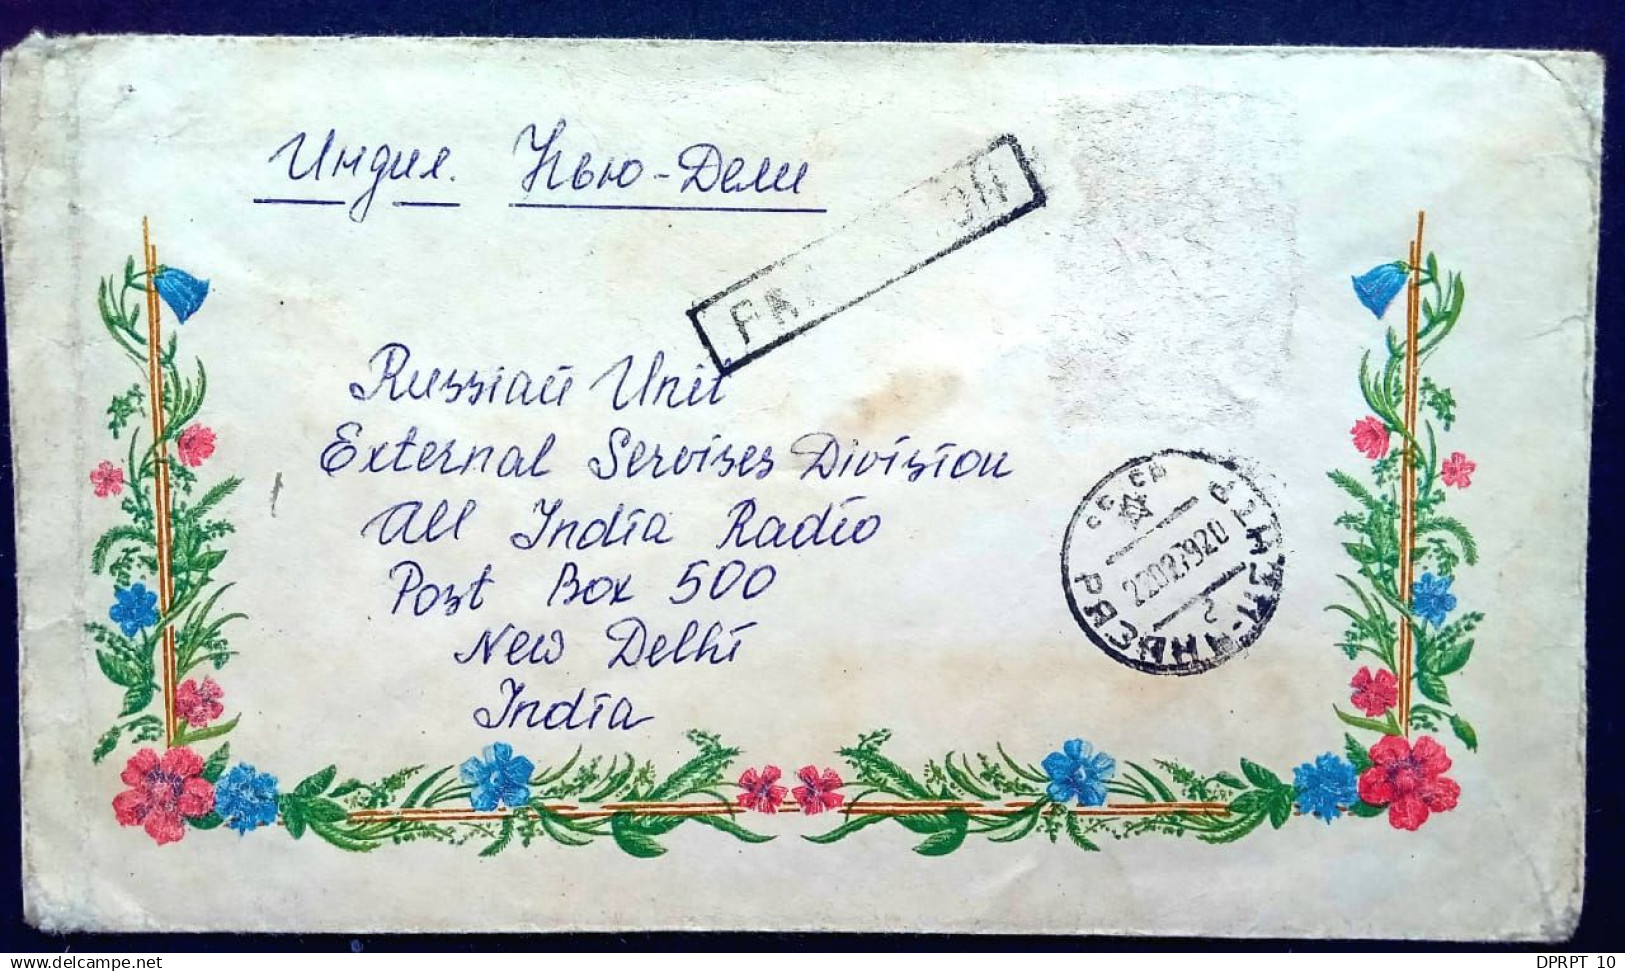 Индия. Нью-Дели
Russian Unit
External Servises Division
All India Radio
Post Box 500
New Delhi
India
СССР
22027920
2
DPRPT 10